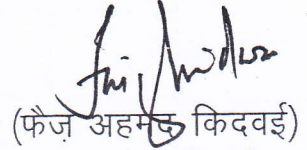 (फैज़ अहमद किदवई)